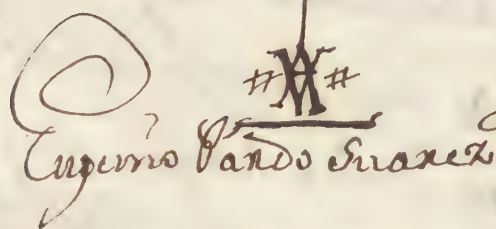 #
#
Eugenio Pando Suarez